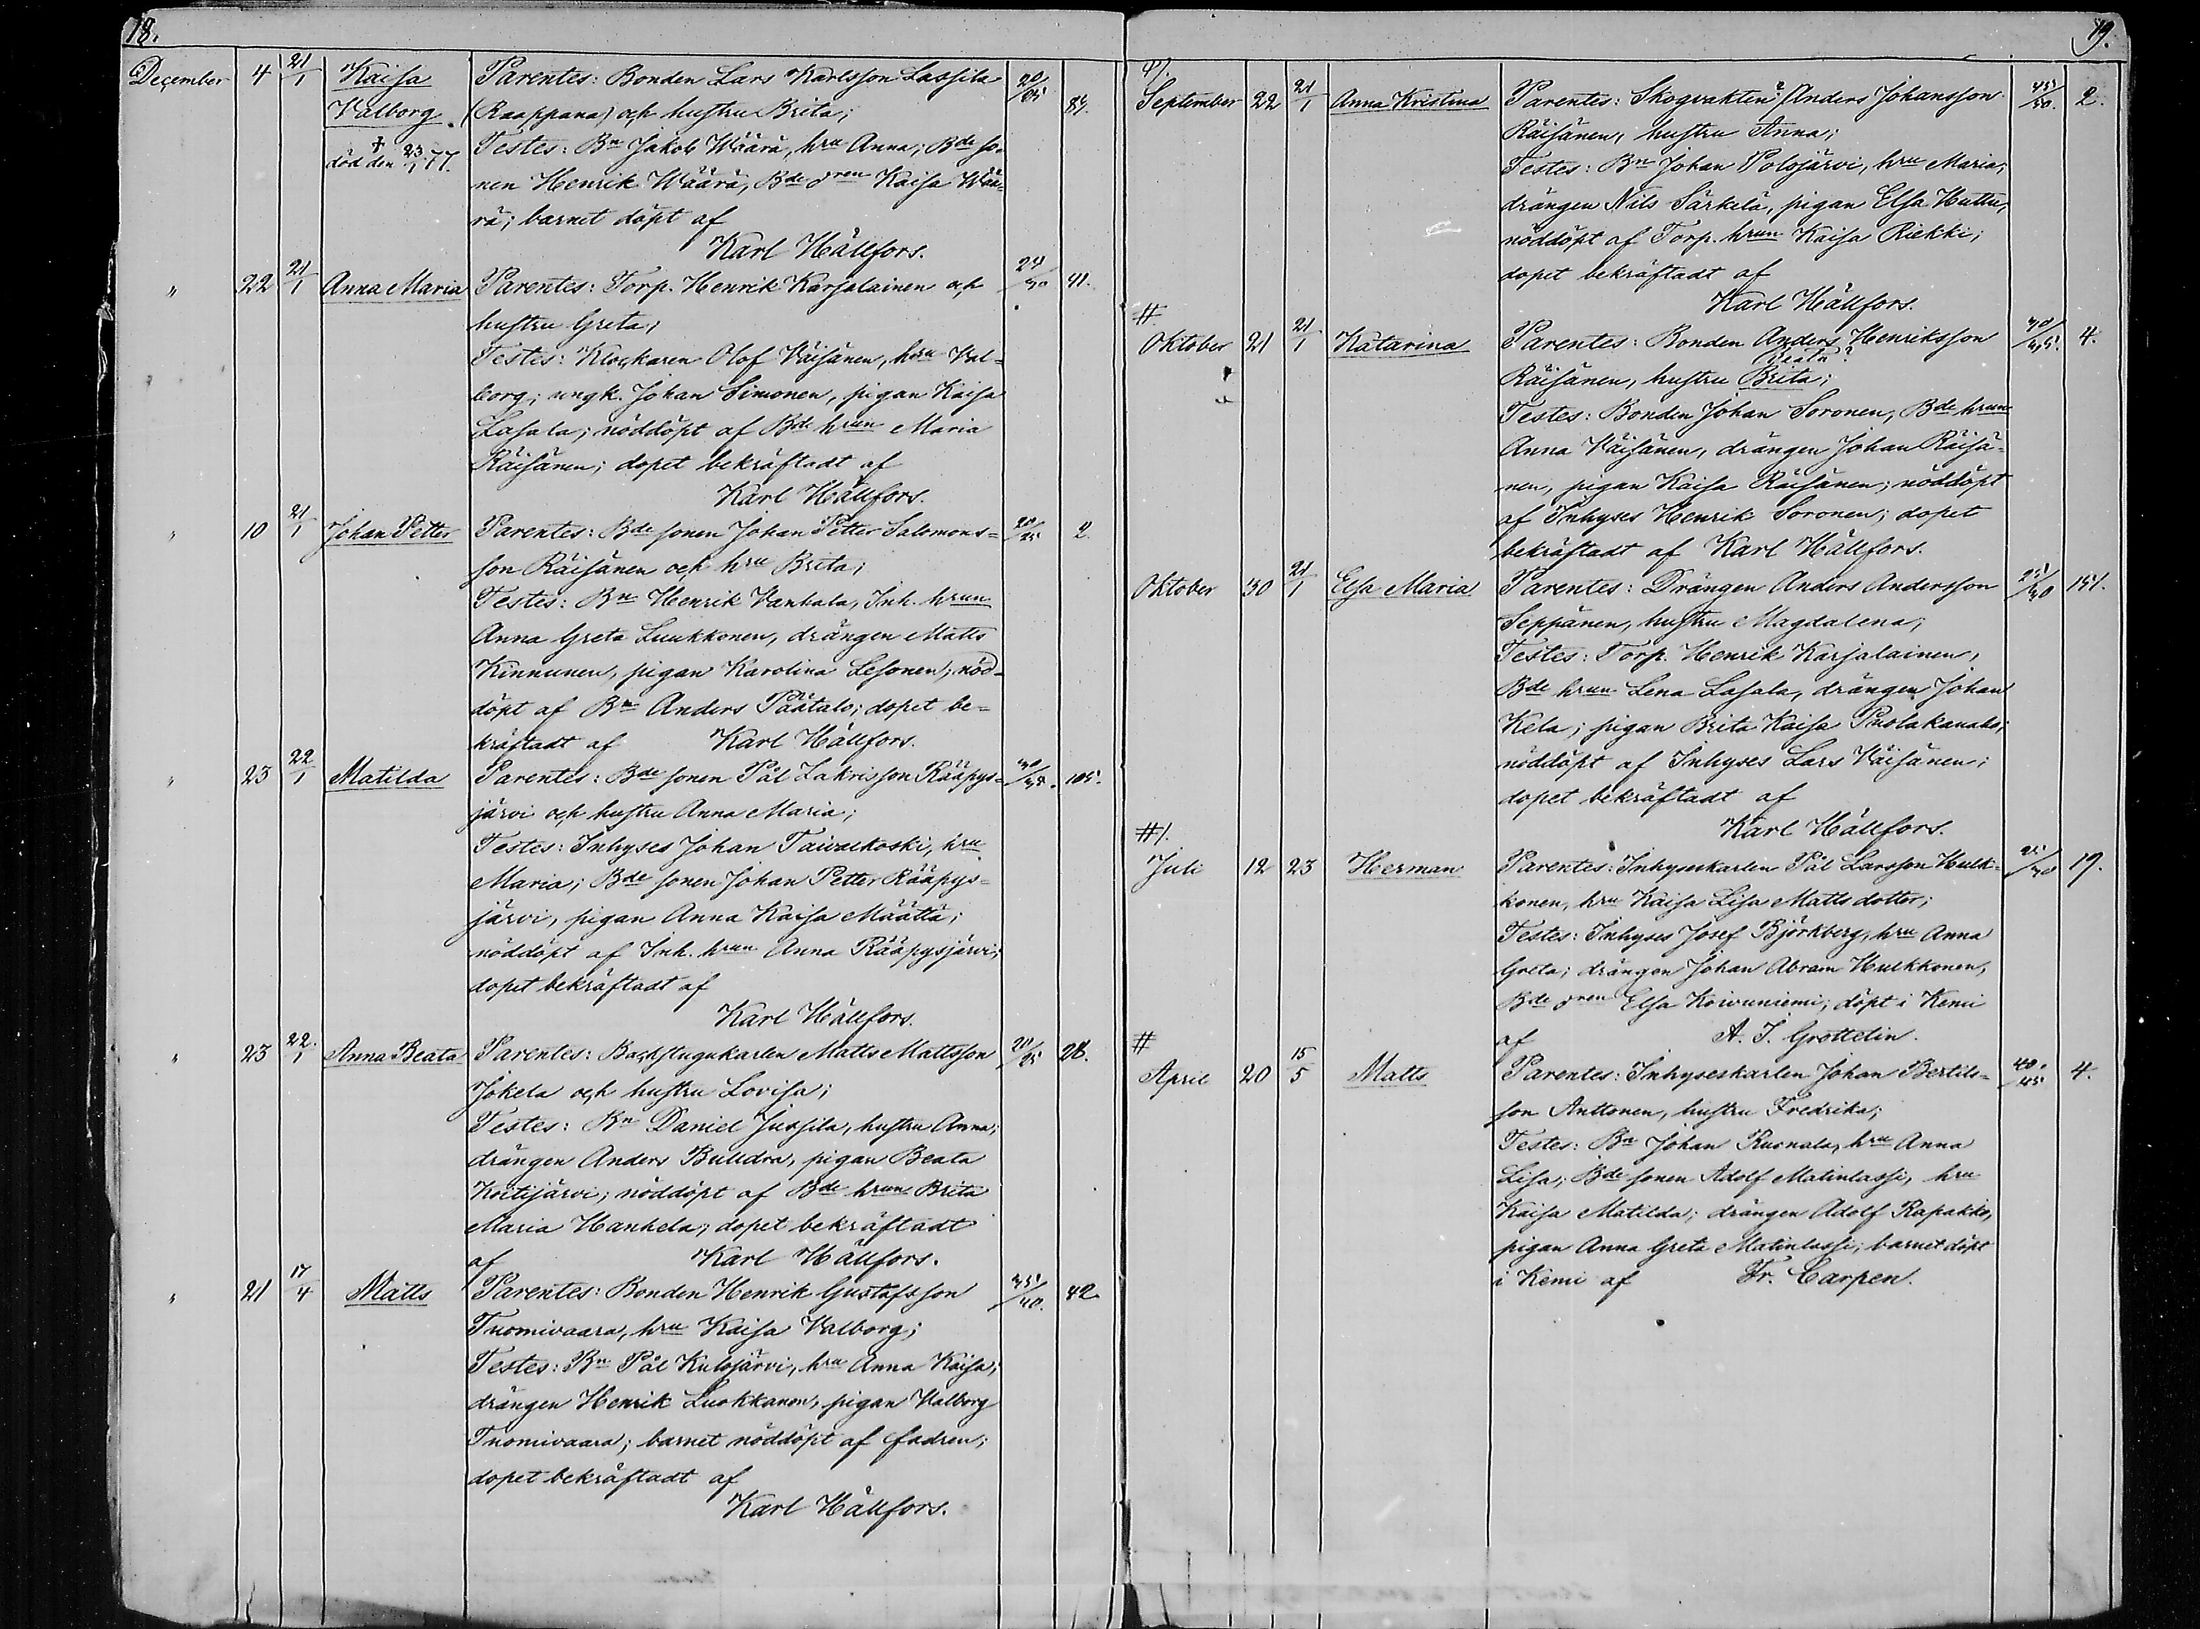 18.
December 4 21/1 Kaisa Parentes: Bonden Lars Karlsson Lassila 20/25
Valborg. (Raappana) och hustru Brita; 89.
† död den 23/1 77. Testes: Bn Jakob Wäärä, hru Anna; Bde so-
nen Henrik Wäärä, Bde dren Kaisa Wää-
rä; barnet döpt af
Karl Hällfors.
" 22 21/1 Anna Maria Parentes: Torp. Henrik Karjalainen och 41.
hustru Greta;
Testes: Klockaren Olof Väisänen, hru Val-
borg; ungk. Johan Simonen, pigan Kaisa
Lasala; nöddöpt af Bde hrun Maria
Räisänen; dopet bekräftadt af
Karl Hällfors.
" 10 21/1 Johan Petter Parentes: Bde sonen Johan Petter Salomons- 20/25 2.
son Räisänen och hru Brita;
Testes: Bn Henrik Vanhala, Inh. hrun
Anna Greta Luukkonen, drängen Matts
Kinnunen, pigan Karolina Lesonen; nöd-
döpt af Bn Anders Päätalo; dopet be-
kräftadt af Karl Hällfors.
" 23 22/1 Matilda Parentes: Bde sonen Pål Zakrisson Rääpys- 30/35. 105.
järvi och hustru Anna Maria;
Testes: Inhyses Johan Taivalkoski, hru
Maria; Bde sonen Johan Petter Rääpys-
järvi, pigan Anna Kaisa Määttä;
nöddöpt af Inh. hrun Anna Rääpysjärvi;
dopet bekräftadt af
Karl Hällfors.
" 23 22./1 Anna Beata Parentes: Backstugukarlen Matts Mattsson 20/25 28.
Jokela och hustru Lovisa;
Testes: Bn Daniel Jussila, hustru Anna;
drängen Anders Buldra, pigan Beata
Koitijärvi; nöddöpt af Bde hrun Brita
Maria Hankela; dopet bekräftadt
af Karl Hällfors.
" 21 17/4 Matts Parentes: Bonden Henrik Gustafsson 35/40. 42.
Tuomivaara, hru Kaisa Valborg;
Testes: Bn Pål Kulojärvi, hru Anna Kaisa;
drängen Henrik Luokkanen, pigan Valborg
Tuomivaara; barnet nöddöpt af fadren;
dopet bekräftadt af
Karl Hällfors.
19.
#/.
September 22 21/1 Anna Kristina Parentes: Skogvakten? Anders Johansson 45/50. 2.
Räisänen, hustru Anna;
Testes: Bn Johan Polojärvi, hru Maria;
drängen Nils Särkelä, pigan Elsa Huttu,
nöddöpt af Torp. hrun Kaisa Riekki;
dopet bekräftadt af
Karl Hällfors.
#
Oktober 21 21/1 Katarina Parentes: Bonden Anders Henriksson 4.
Beata?
Räisänen, hustru Brita;
Testes: Bonden Johan Soronen, Bde hrun
Anna Väisänen, drängen Johan Räisä-
nen, pigan Kaisa Räisänen; nöddöpt
af Inhyses Henrik Soronen; dopet
bekräftadt af Karl Hällfors.
Oktober 30 21/1 Elsa Maria Parentes: Drängen Anders Andersson 25/30 151.
Seppänen, hustru Magdalena;
Testes: Torp. Henrik Karjalainen,
Bde hrun Lena Lasala, drängen Johan
Kela; pigan Brita Kaisa
nöddöpt af Inhyses Lars Väisänen;
dopet bekräftadt af
Karl Hällfors.
#/.
Juli 12 23 Herman Parentes: Inhyseskarlen Pål Larsson Hulk- 25/30 19.
konen, hru Kaisa Lisa Matts dotter;
Testes: Inhyses Josef Björkberg, hru Anna
Greta; drängen Johan Abram Hulkkonen,
Bde dren Elsa Koivuniemi; döpt i Kemi
af A. I. Grottelin.
#
April 20 15/5 Matts Parentes: Inhyseskarlen Johan Bertils- 40./45 4.
son Anttonen, hustru Fredrika;
Testes: Bn Johan Ruonala, hru Anna
Lisa; Bde sonen Adolf Matinlassi, hru
Kaisa Matilda; drängen Adolf Rapakko,
pigan Anna Greta Matinlassi; barnet döpt
i Kemi af Fr. Carpen.